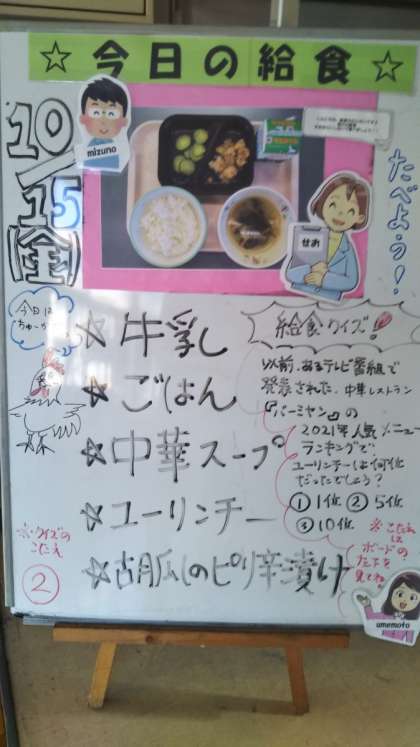 ☆今日の給食☆
10/15(金)
mizuno
せお
たべよう!
今日は
☆牛乳
☆ごはん
☆中華スープ
☆ユーリンチー
☆胡瓜のピリ辛漬け
給食クイズ!
以前、あるテレビ番組で
発表された、中華レストラン
『バーミヤン』の
2021年人気メニュー
ランキングで
ユーリンチーは何位
だったでしょう?
①1位 ②5位
③10位
※こたえ
は
ボード
の
した を
見てね
※クイズの
こたえ
②
umemoto